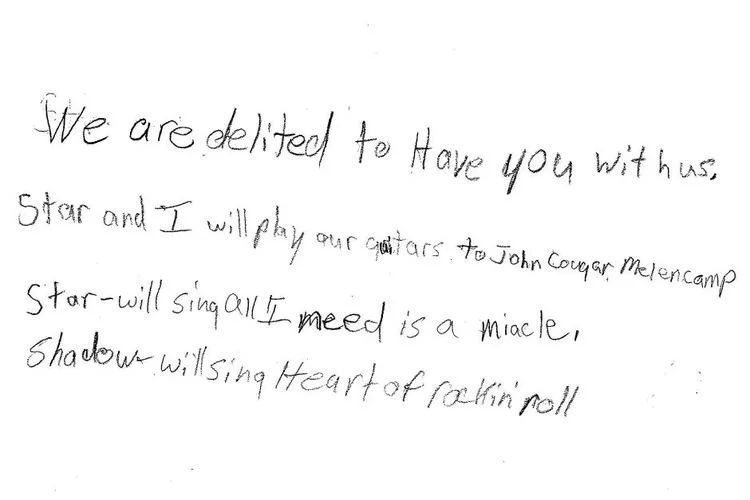 We are delited to Have you with us.
Star and I will play our guitars to John Cougar Melencamp
Star-will sing All I need is a miacle,
Shadow-will sing Heart of rockin' roll